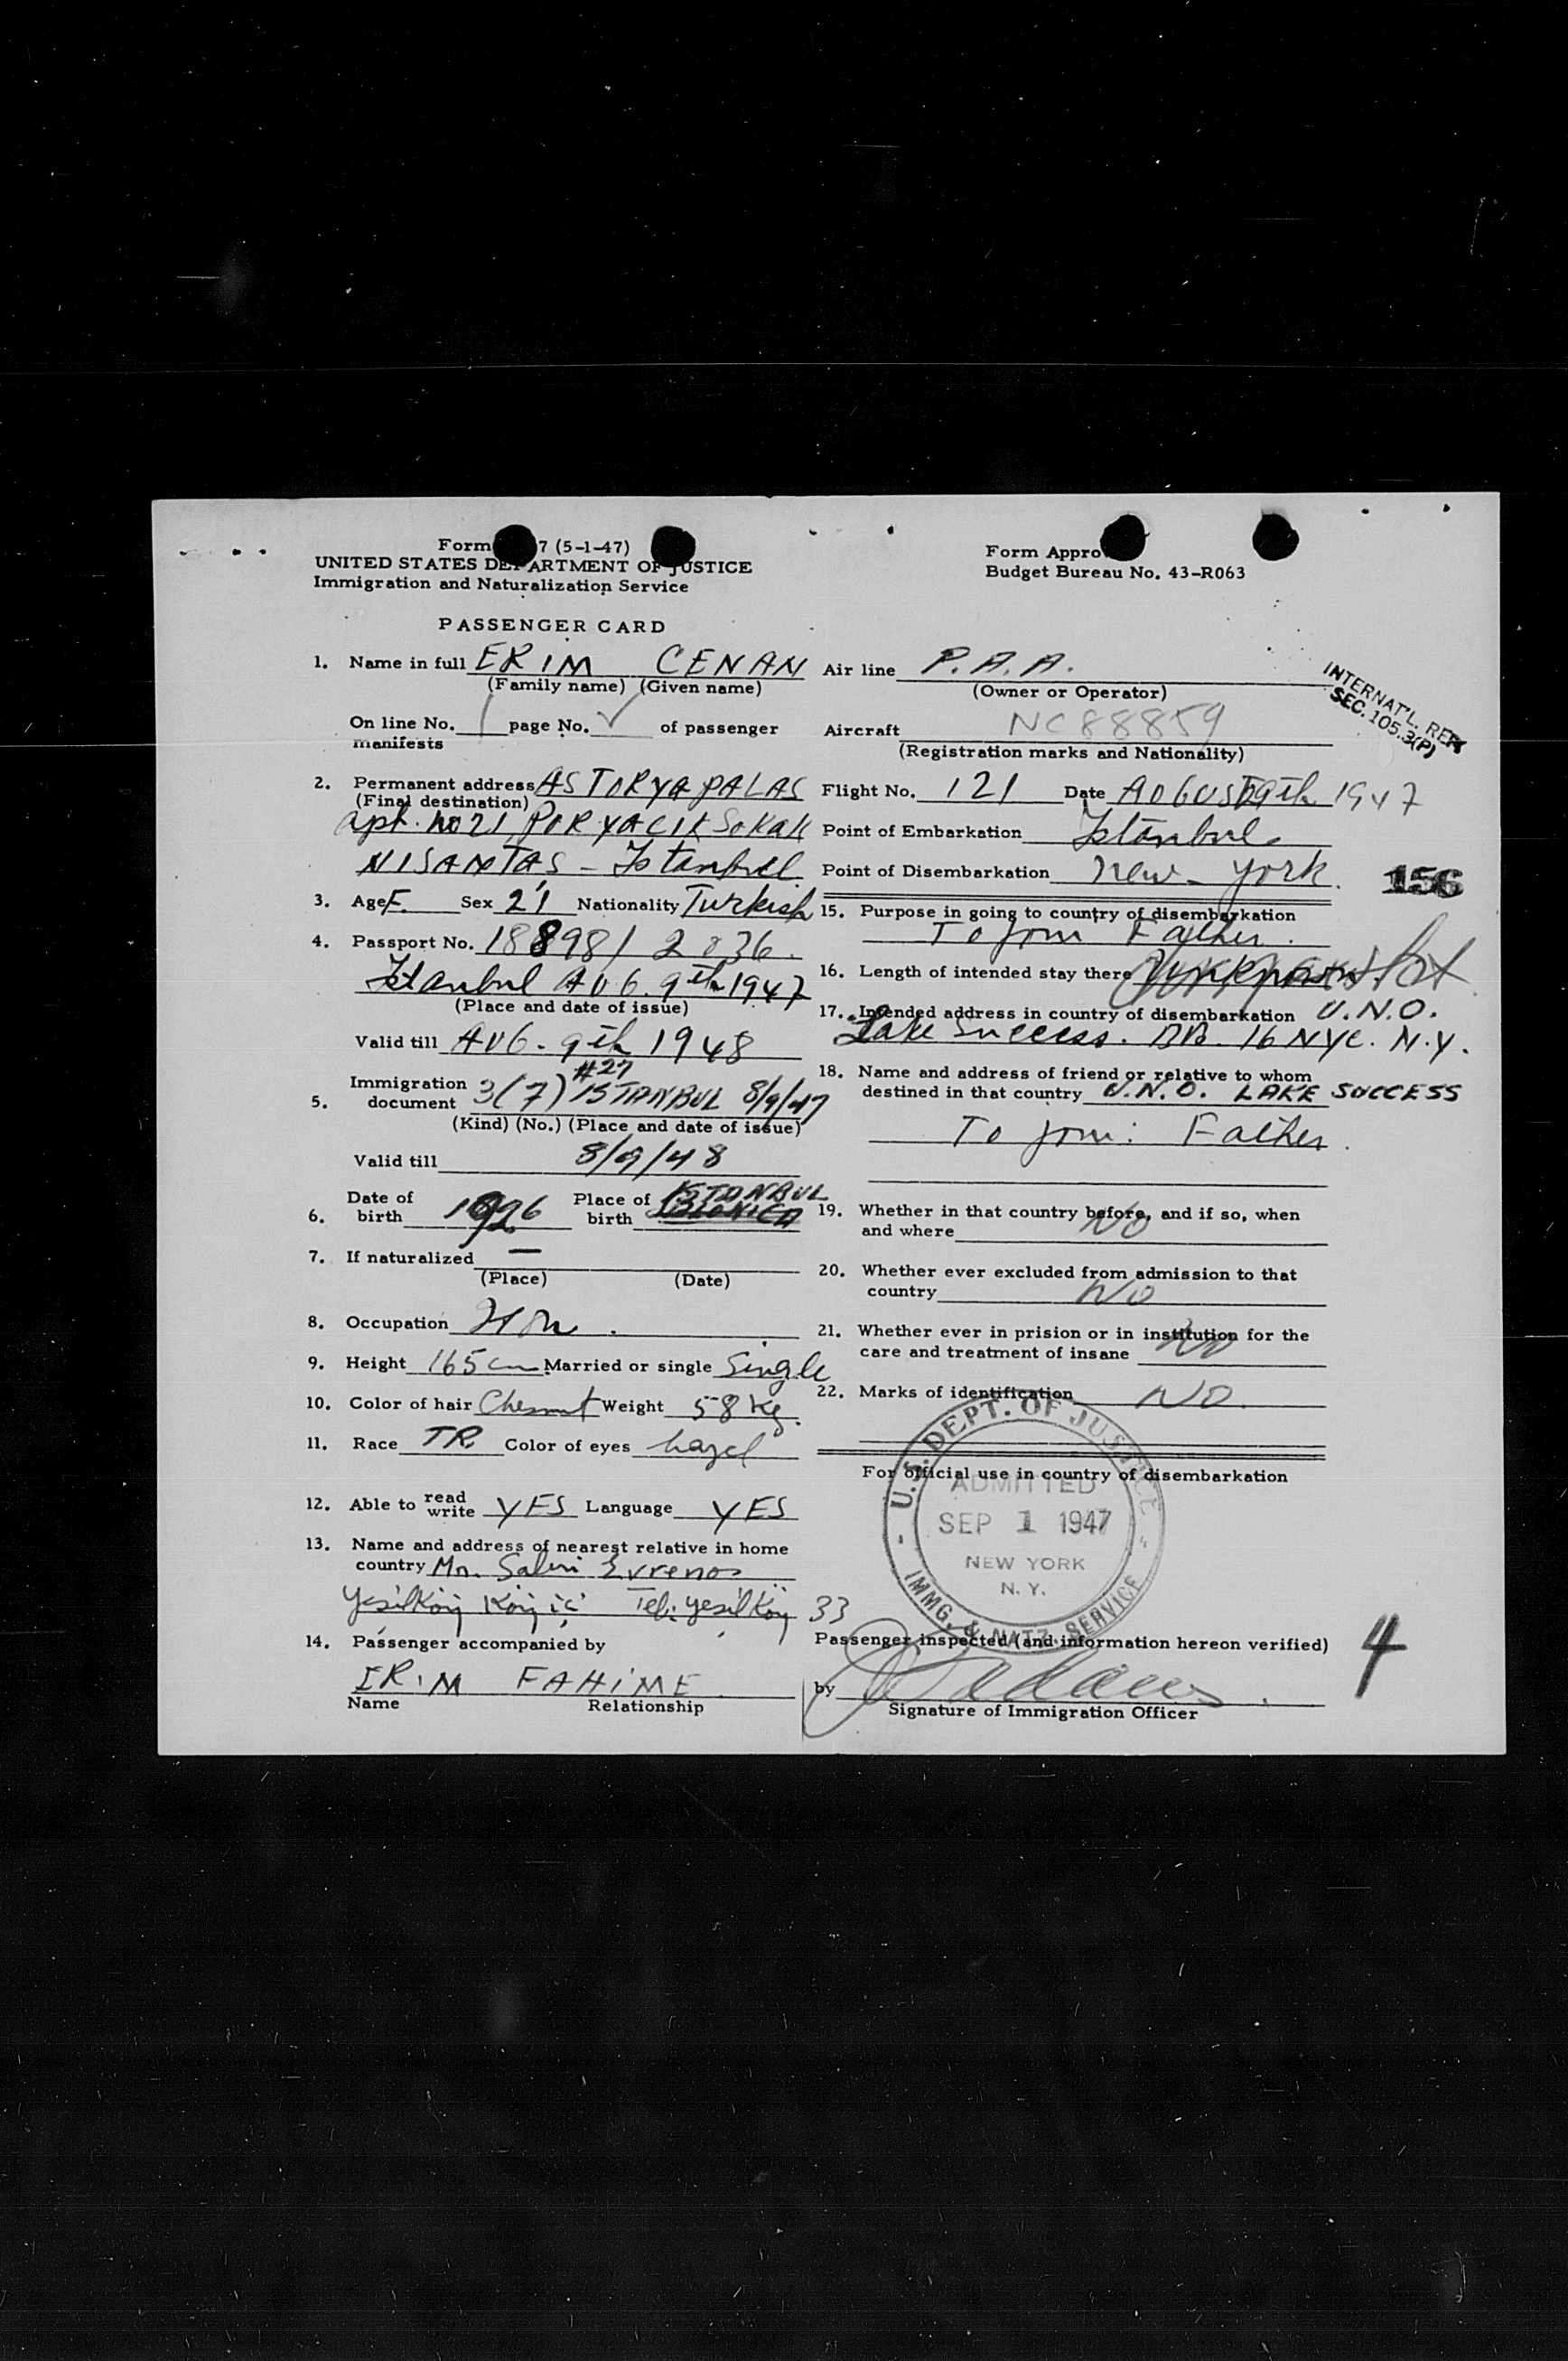 Form 7 (5-1-47)
UNITED STATES DEPARTMENT OF JUSTICE
Immigration and Naturalization Service
Form Appro
Budget Bureau No. 43-R063
PASSENGER CARD
1. Name in full ERIM CENAN
(Family name) (Given name)
On line No. 1 page No. ✓ of passenger
manifests
2. Permanent address ASTORYA PALAS
(Final destination)
apt. no 21 PORYACIK SOKAK
NISANTAS - Istanbul
3. Age F. Sex 21 Nationality Turkish
4. Passport No. 188981 2836.
Istanbul AUG. 9th 1947
(Place and date of issue)
Valid till AUG. 9th 1948
#27
5. Immigration document 3(7) ISTANBUL 8/9/47
(Kind) (No.) (Place and date of issue)
Valid till 8/9/48
6. Date of birth 1926 Place of birth ISTANBUL
7. If naturalized —
(Place) (Date)
8. Occupation
9. Height 165 cm Married or single Single
10. Color of hair Chesnut Weight 58 Kg.
11. Race TR. Color of eyes hazel
12. Able to read write YES Language YES
13. Name and address of nearest relative in home
country Mr. Sabri Evrenos
Yesilköy Köy içi Tel: yesilköy 33
14. Passenger accompanied by
ERIM FAHİME
Name Relationship
Air line P.A.A.
(Owner or Operator)
INTERNAT'L. REG.
SEC. 105.3(P)
Aircraft NC88859
(Registration marks and Nationality)
Flight No. 121 Date AUGUST 9th 1947
Point of Embarkation Istanbul
Point of Disembarkation New-York.
156
15. Purpose in going to country of disembarkation
To join Father.
16. Length of intended stay there Unknown
17. Intended address in country of disembarkation U.N.O.
Lake Success. 16 NYC. N.Y.
18. Name and address of friend or relative to whom
destined in that country U.N.O. LAKE SUCCESS
To join: Father.
19. Whether in that country before, and if so, when
and where NO
20. Whether ever excluded from admission to that
country NO
21. Whether ever in prision or in institution for the
care and treatment of insane NO
22. Marks of identification NO.
For official use in country of disembarkation
U.S. DEPT. OF JUSTICE
ADMITTED
SEP 1 1947
NEW YORK
N. Y.
IMMG. & NATZ. SERVICE
Passenger inspected (and information hereon verified)
by
Signature of Immigration Officer
4